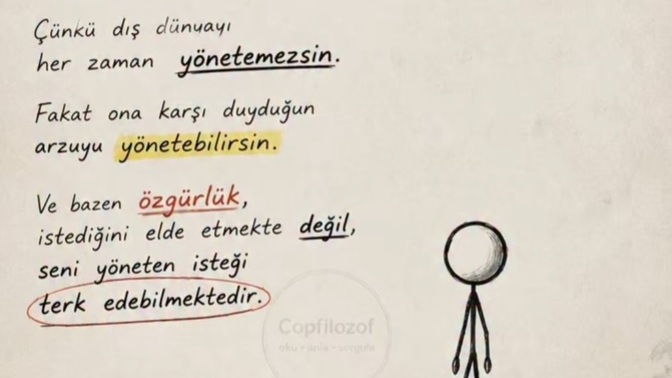 Çünkü dış dünyayı
her zaman yönetemezsin.
Fakat ona karşı duyduğun
arzuyu yönetebilirsin.
Ve bazen özgürlük,
istediğini elde etmekte değil,
seni yöneten isteği
terk edebilmektedir.
Copfilozof